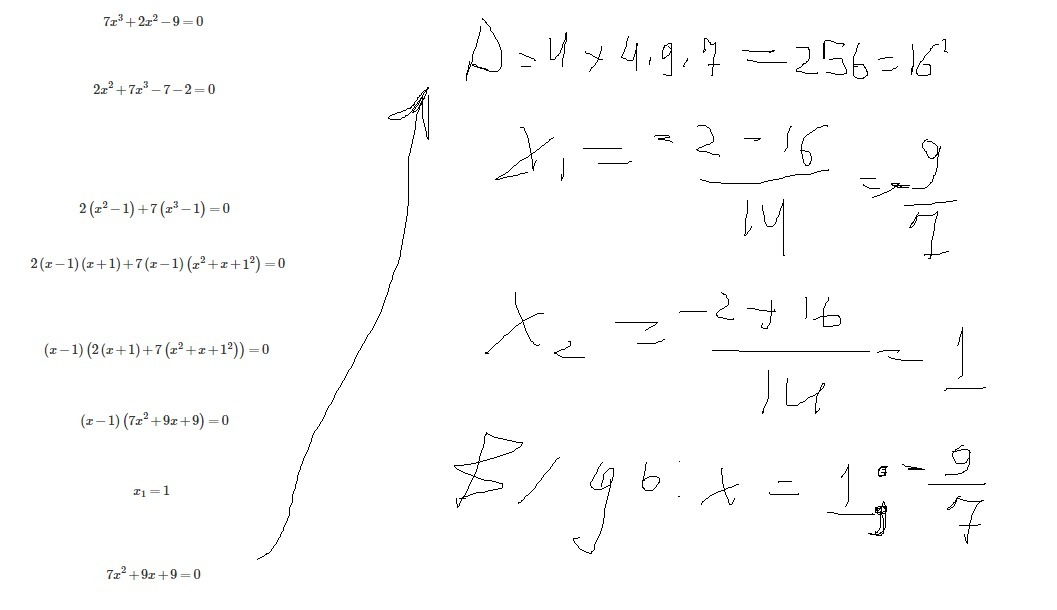 7x³+2x²−9=0
2x²+7x³−7−2=0
2(x²−1)+7(x³−1)=0
2(x−1)(x+1)+7(x−1)(x²+x+1²)=0
(x−1)(2(x+1)+7(x²+x+1²))=0
(x−1)(7x²+9x+9)=0
x₁=1
7x²+9x+9=0
D=4+4.9.7=256=16²
x₁=(-2-16)/14=-9/7
x₂=(-2+16)/14=1
x=1; -9/7